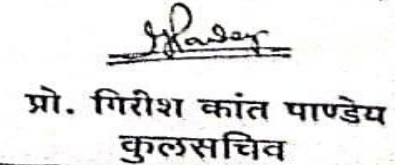 प्रो. गिरीश कांत पाण्डेय
कुलसचिव